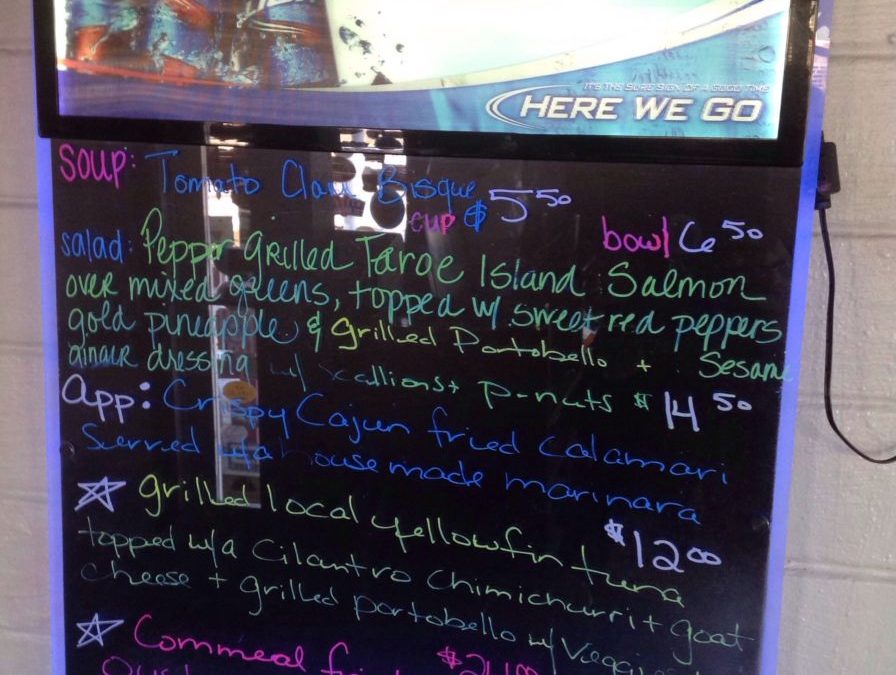 IT'S THE SURE SIGN OF A GOOD TIME
HERE WE GO
Soup: Tomato Clam Bisque
cup $5 50 bowl 6 50
salad: Pepper Grilled Faroe Island Salmon
over mixed greens, topped w/ sweet red peppers
gold pineapple & grilled Portobello + Sesame
ginger dressing w/ scallions + p-nuts $14 50
App: Crispy Cajun fried Calamari
Served w/a housemade marinara
$12 00
☆ grilled local yellowfin tuna
topped w/a Cilantro Chimichurri + goat
cheese + grilled portobello w/ Veggies
☆ Cornmeal $24 00